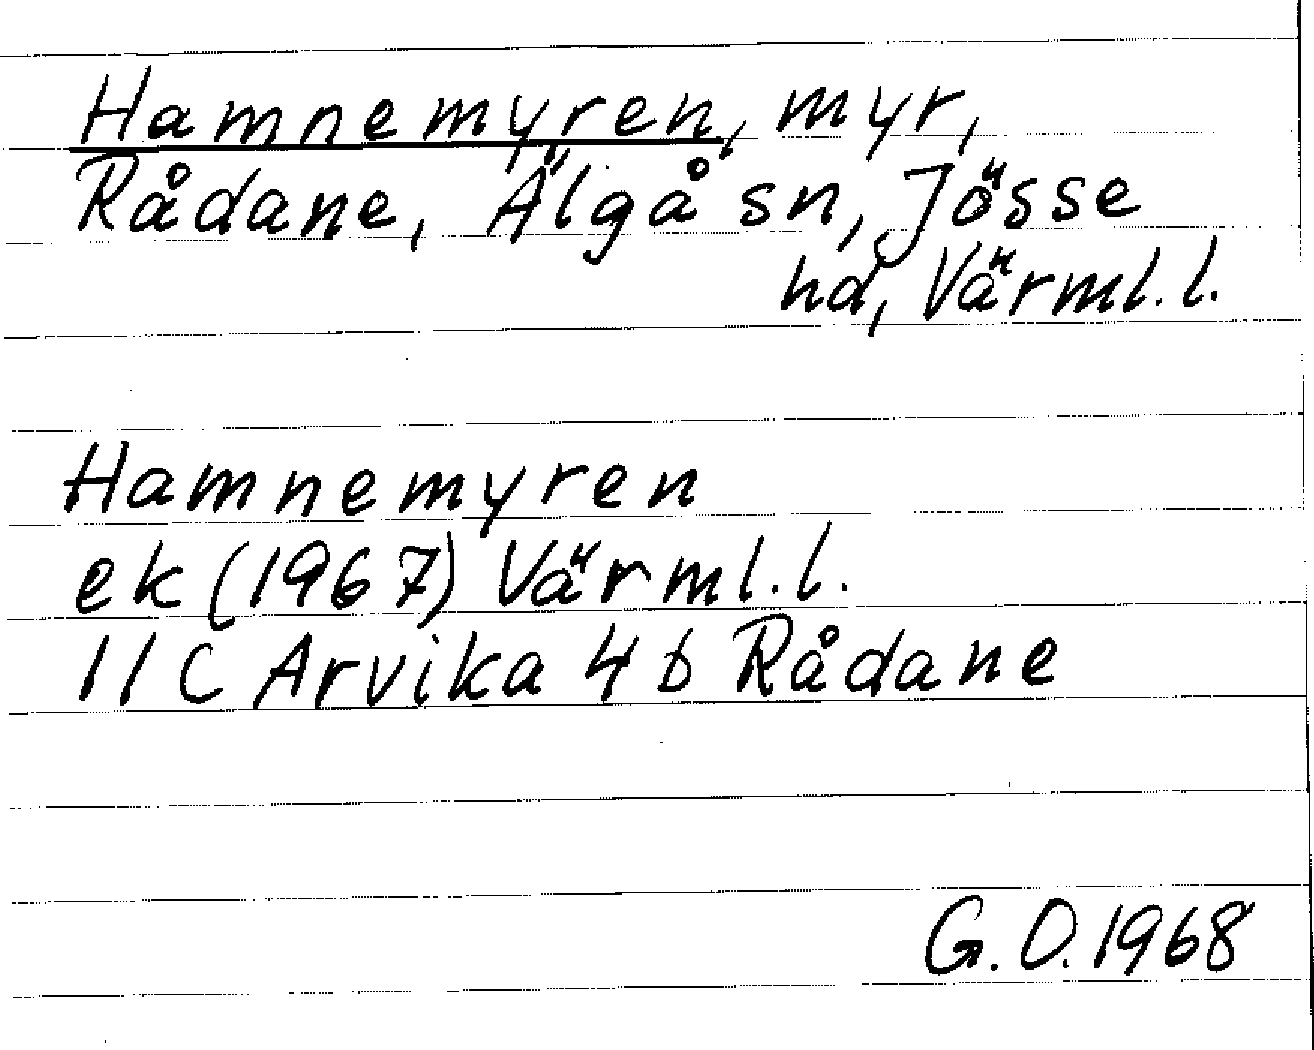 Hamnemyren, myr,
Rådane, Älgå sn, Jösse
hd, Värml.l.
Hamnemyren
ek (1967) Värml.l.
11C Arvika 4b Rådane
G.O.1968